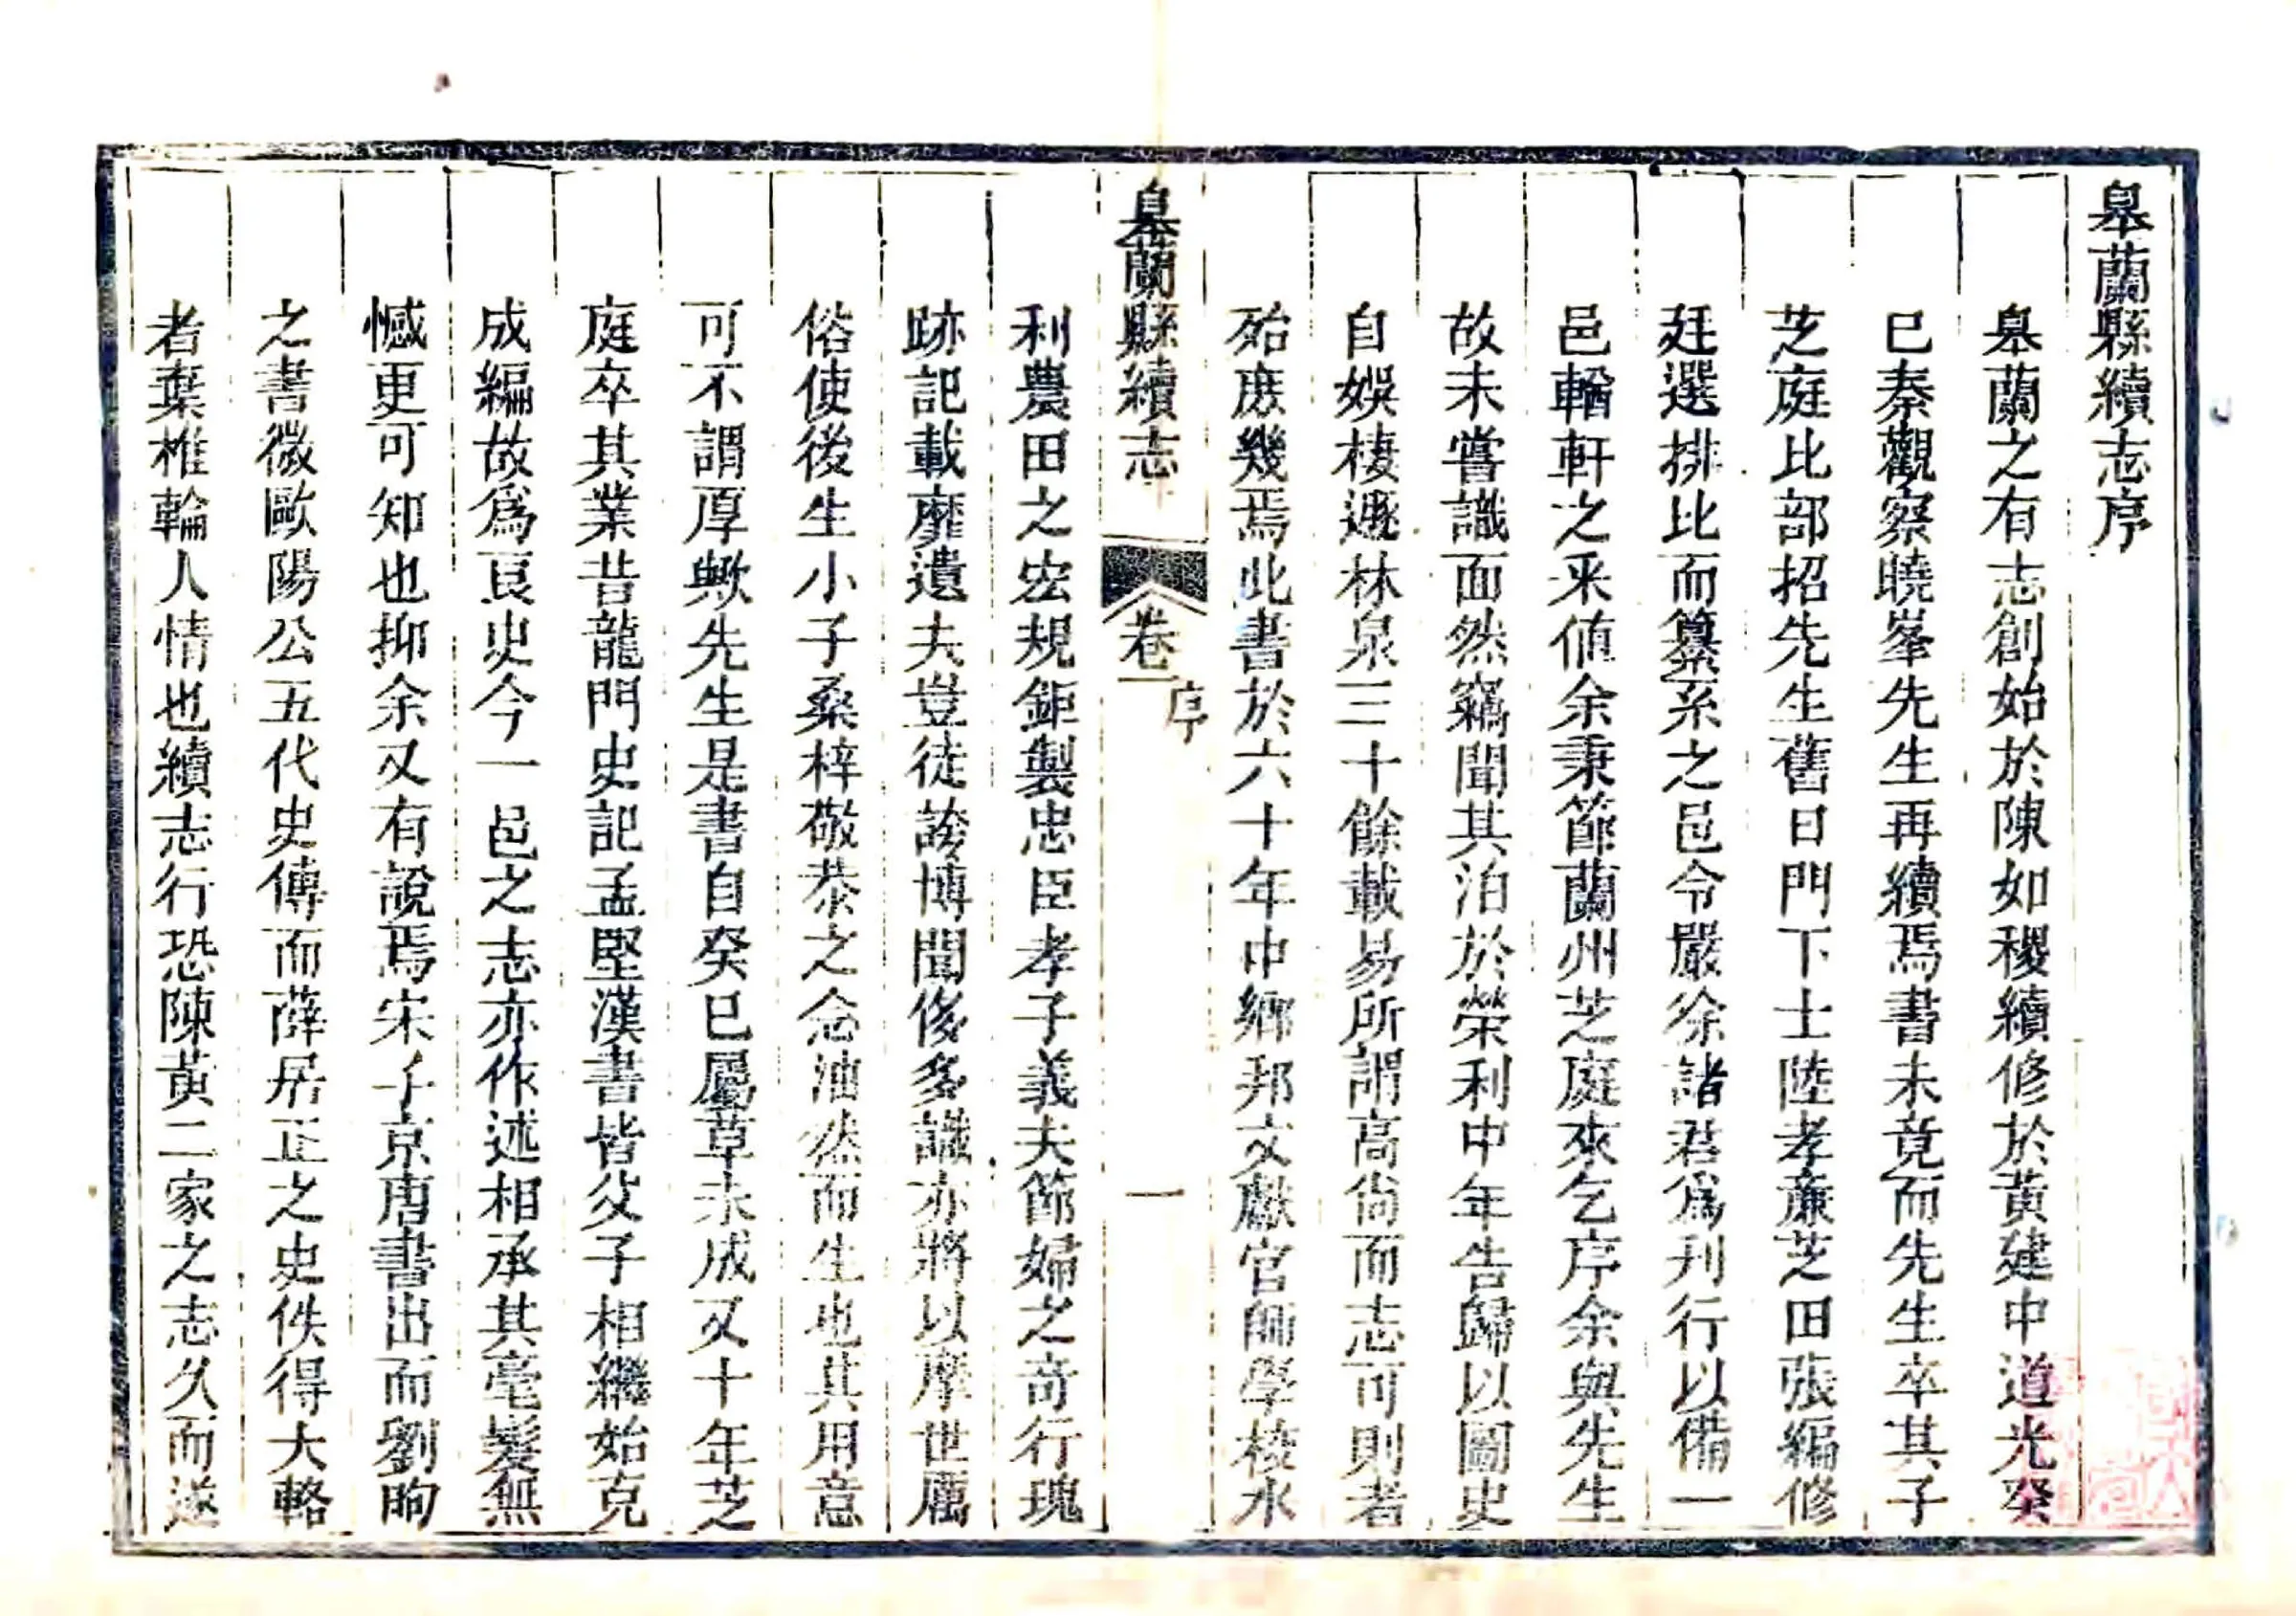 皐蘭縣續志序
皐蘭之有志創始於陳如稷續修於黃建中道光癸
巳秦觀察曉峯先生再續焉書未竟而先生卒其子
芝庭比部招先生舊日門下士陸孝廉芝田張編修
廷選排比而纂系之邑令嚴徐諸君爲刋行以備一
邑輶軒之采値余秉節蘭州芝庭來乞序余與先生
故未嘗識面然竊聞其泊於榮利中年告歸以圖史
自娛棲遯林泉三十餘載易所謂高尙而志可則者
殆庶幾焉此書於六十年中鄉邦文獻官師學校水
皐蘭縣續志
卷一
序
一
利農田之宏規鉅製忠臣孝子義夫節婦之奇行瑰
跡記載靡遺夫豈徒誇博聞侈多識亦將以摩世厲
俗使後生小子桑梓敬恭之念油然而生也其用意
可不謂厚歟先生是書自癸巳屬草未成又十年芝
庭卒其業昔龍門史記孟堅漢書皆父子相繼始克
成編故爲良史今一邑之志亦作述相承其毫髮無
憾更可知也抑余又有說焉宋子京唐書出而劉昫
之書微歐陽公五代史傳而薛居正之史佚得大輅
者棄椎輪人情也續志行恐陳黃二家之志久而遂